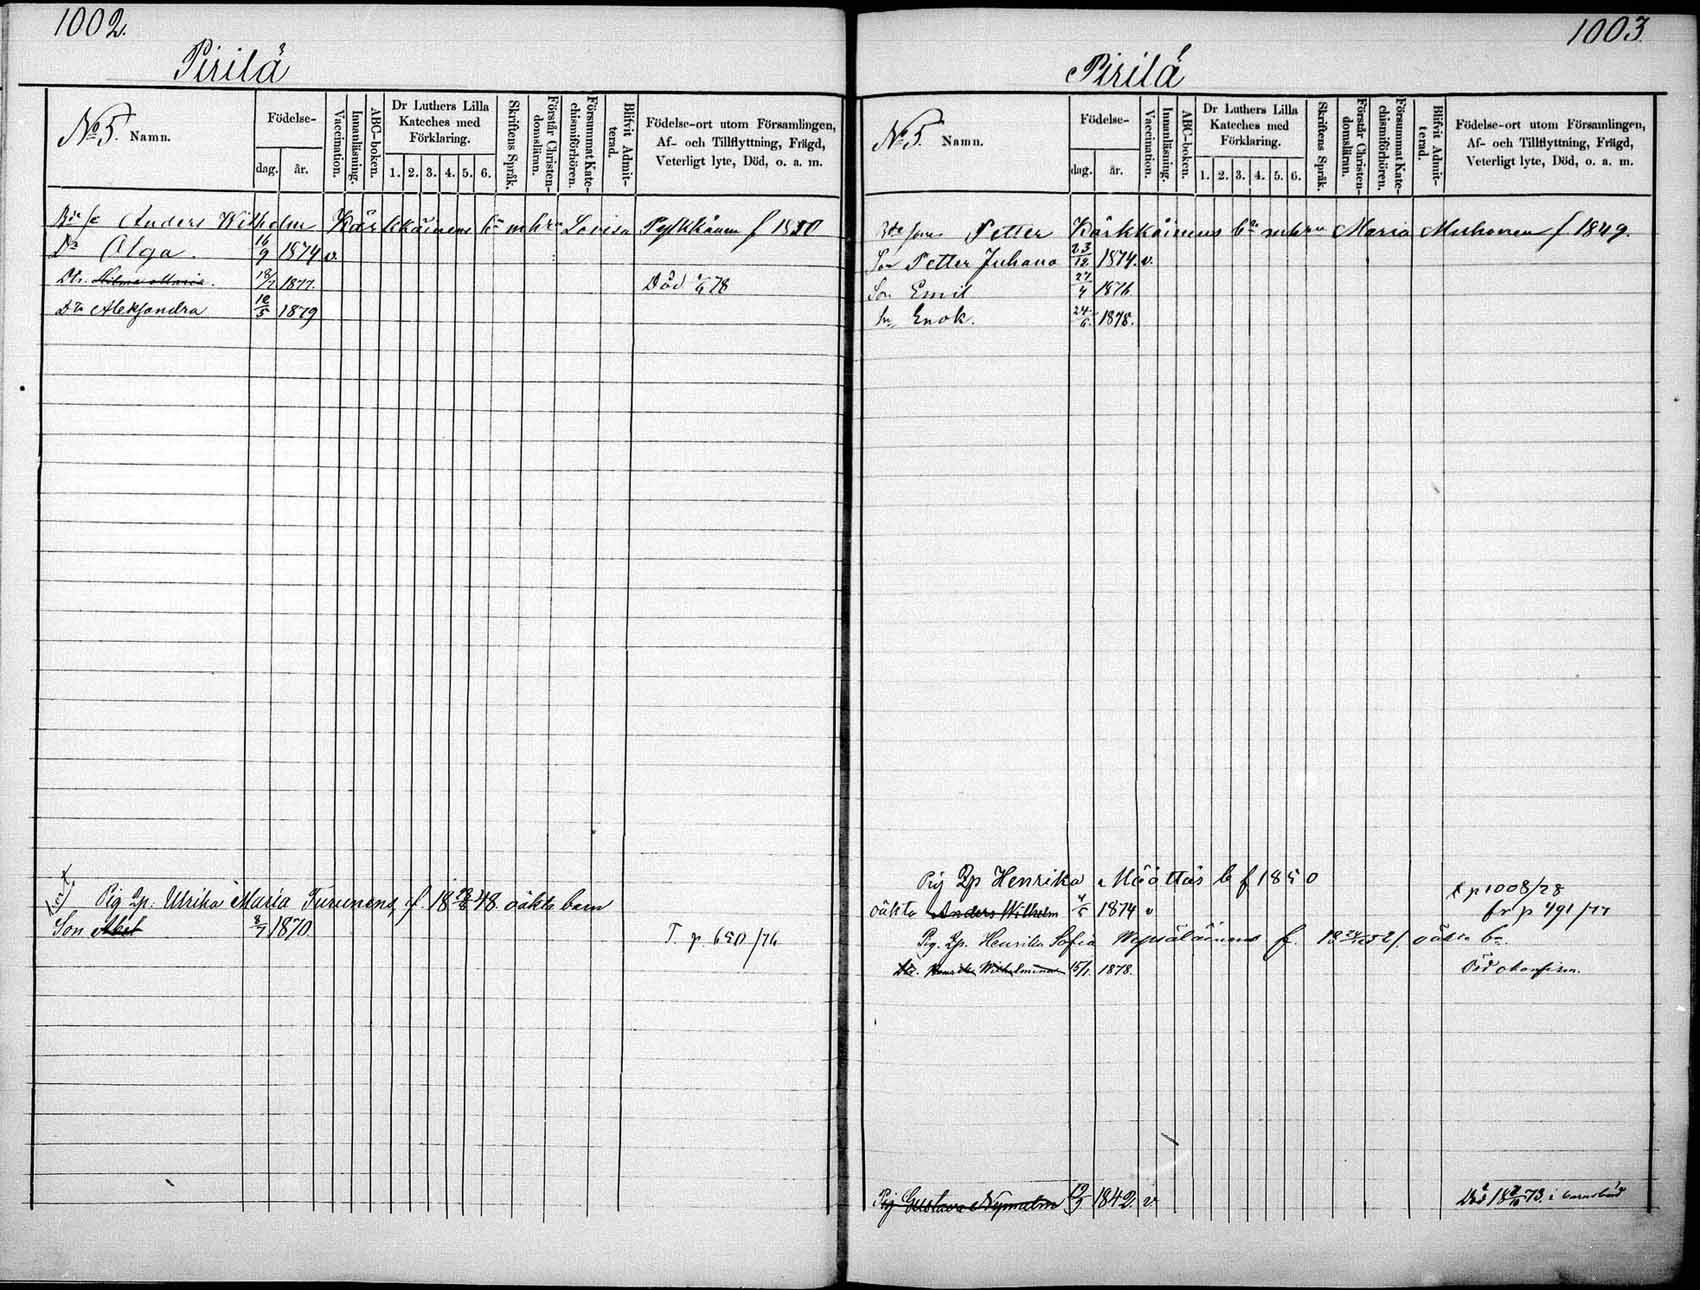 1002.
Pirilä
No 5. Namn.
Födelse-
dag. år.
Vaccination.
Innanläsning.
ABC-boken.
Dr Luthers Lilla Kateches med Förklaring.
1. 2. 3. 4. 5. 6.
Skriftens Språk.
Förstår Christendomsläran.
Försummat Katechismiförhören.
Blifvit Admitterad.
Födelse-ort utom Församlingen, Af- och Tillflyttning, Frägd, Veterligt lyte, Död, o. a. m.
Anders Wilhelm Kärkkäinens bn m hru Lovisa f 1850
Dr Olga. 16/9 1874 v.
Dr. Hilma Maria. 18/7 1877. Död 78
Dr Aleksandra 10/5 1879
Pig Lp. Ulrika Maria Turunens, f. 18 48. oäkta barn
Son Abel 1870 T. p 650/76
1003.
Pirilä
No 5. Namn.
Födelse-
dag. år.
Vaccination.
Innanläsning.
ABC-boken.
Dr Luthers Lilla Kateches med Förklaring.
1. 2. 3. 4. 5. 6.
Skriftens Språk.
Förstår Christendomsläran.
Försummat Katechismiförhören.
Blifvit Admitterad.
Födelse-ort utom Församlingen, Af- och Tillflyttning, Frägd, Veterligt lyte, Död, o. a. m.
Petter Kärkkäinens bn m hru Maria Muhonen f. 1849.
Son Petter Juhana 23/12 1874. v.
Son Emil 27/4 1876
Sn Enok. 24/6 1878.
Pig Lp Henrika Määttäs b f 1850
p 1008/78
oäkta Anders Wilhelm 1874 v fr p 491/77
Pig. Lp. Henrika Sofia f. 18 52/ oäkta bn.
Dr. Wilhelmina 15/1. 1878. Död
Pig Gustava Nymalm 1842. v. Död 18 73. i barnsbörd